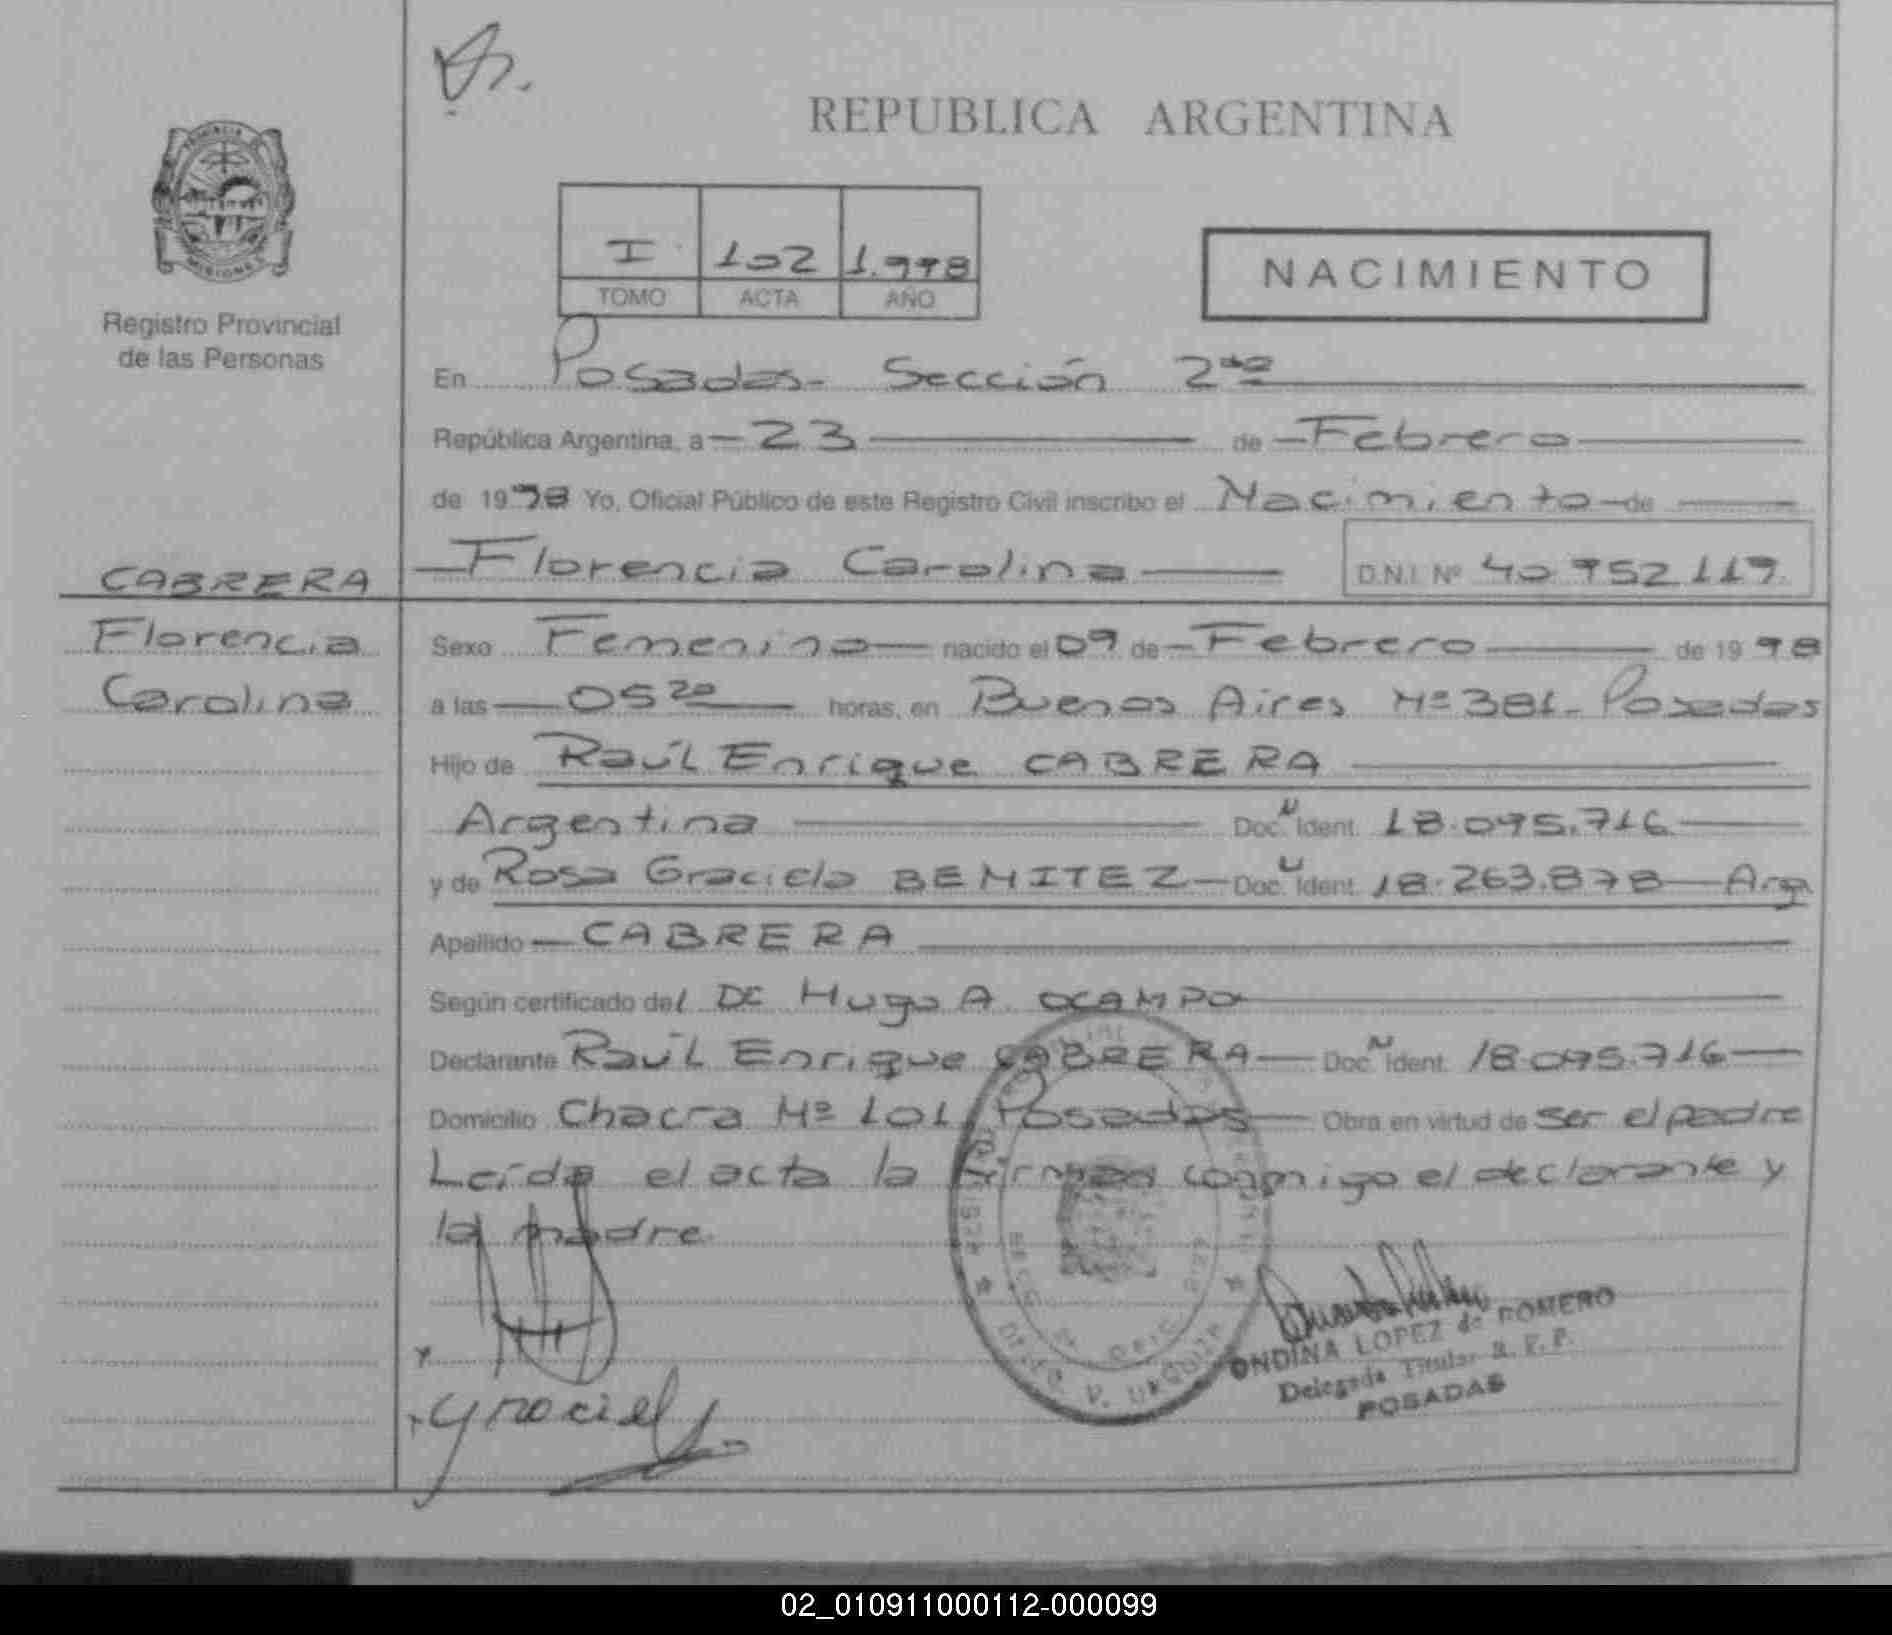 REPUBLICA ARGENTINA
PROVINCIA
MISIONES
Registro Provincial
de las Personas
I 102 1.998
TOMO ACTA AÑO
NACIMIENTO
En Posadas- Sección 2da
República Argentina, a 23 de Febrero
de 1998 Yo, Oficial Público de este Registro Civil inscribo el Nacimiento de
CABRERA
Florencia Carolina D.N.I. Nº 40 952 119
Florencia
Carolina
Sexo Femenino nacido el 09 de Febrero de 1998
a las 05 20 horas, en Buenos Aires Nº 381- Posadas
Hijo de Raúl Enrique CABRERA
Argentina Doc. N Ident. 18.095.716
y de Rosa Graciela BENITEZ Doc. U Ident. 18.263.878 Arg
Apellido CABRERA
Según certificado del Dr Hugo A. OCAMPO
Declarante Raúl Enrique CABRERA Doc. N Ident. 18.095.716
Domicilio Chacra Nº 101 Posadas Obra en virtud de ser el padre
Leída el acta la firman conmigo el declarante y
la madre.
Graciela
ONDINA LOPEZ de ROMERO
Delegada Titular R. P. P.
POSADAS
02_010911000112-000099